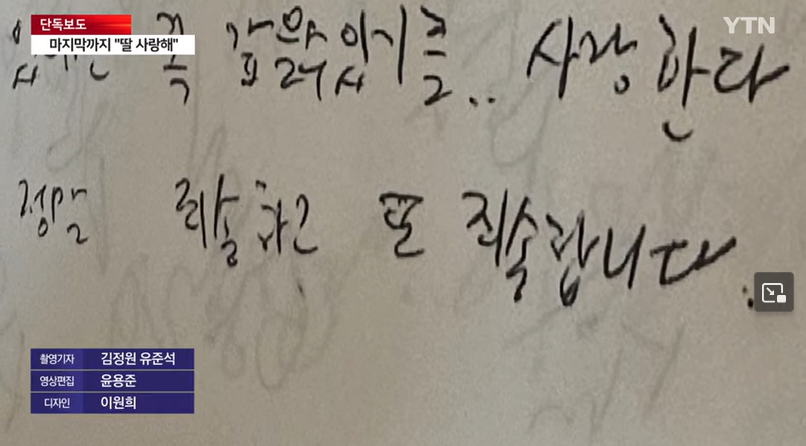 단독보도
마지막까지 "딸 사랑해"
YTN
꼭 갚을 수 있기를.. 사랑한다
정말 죄송하고 또 죄송합니다.
촬영기자 김정원 유준석
영상편집 윤용준
디자인 이원희